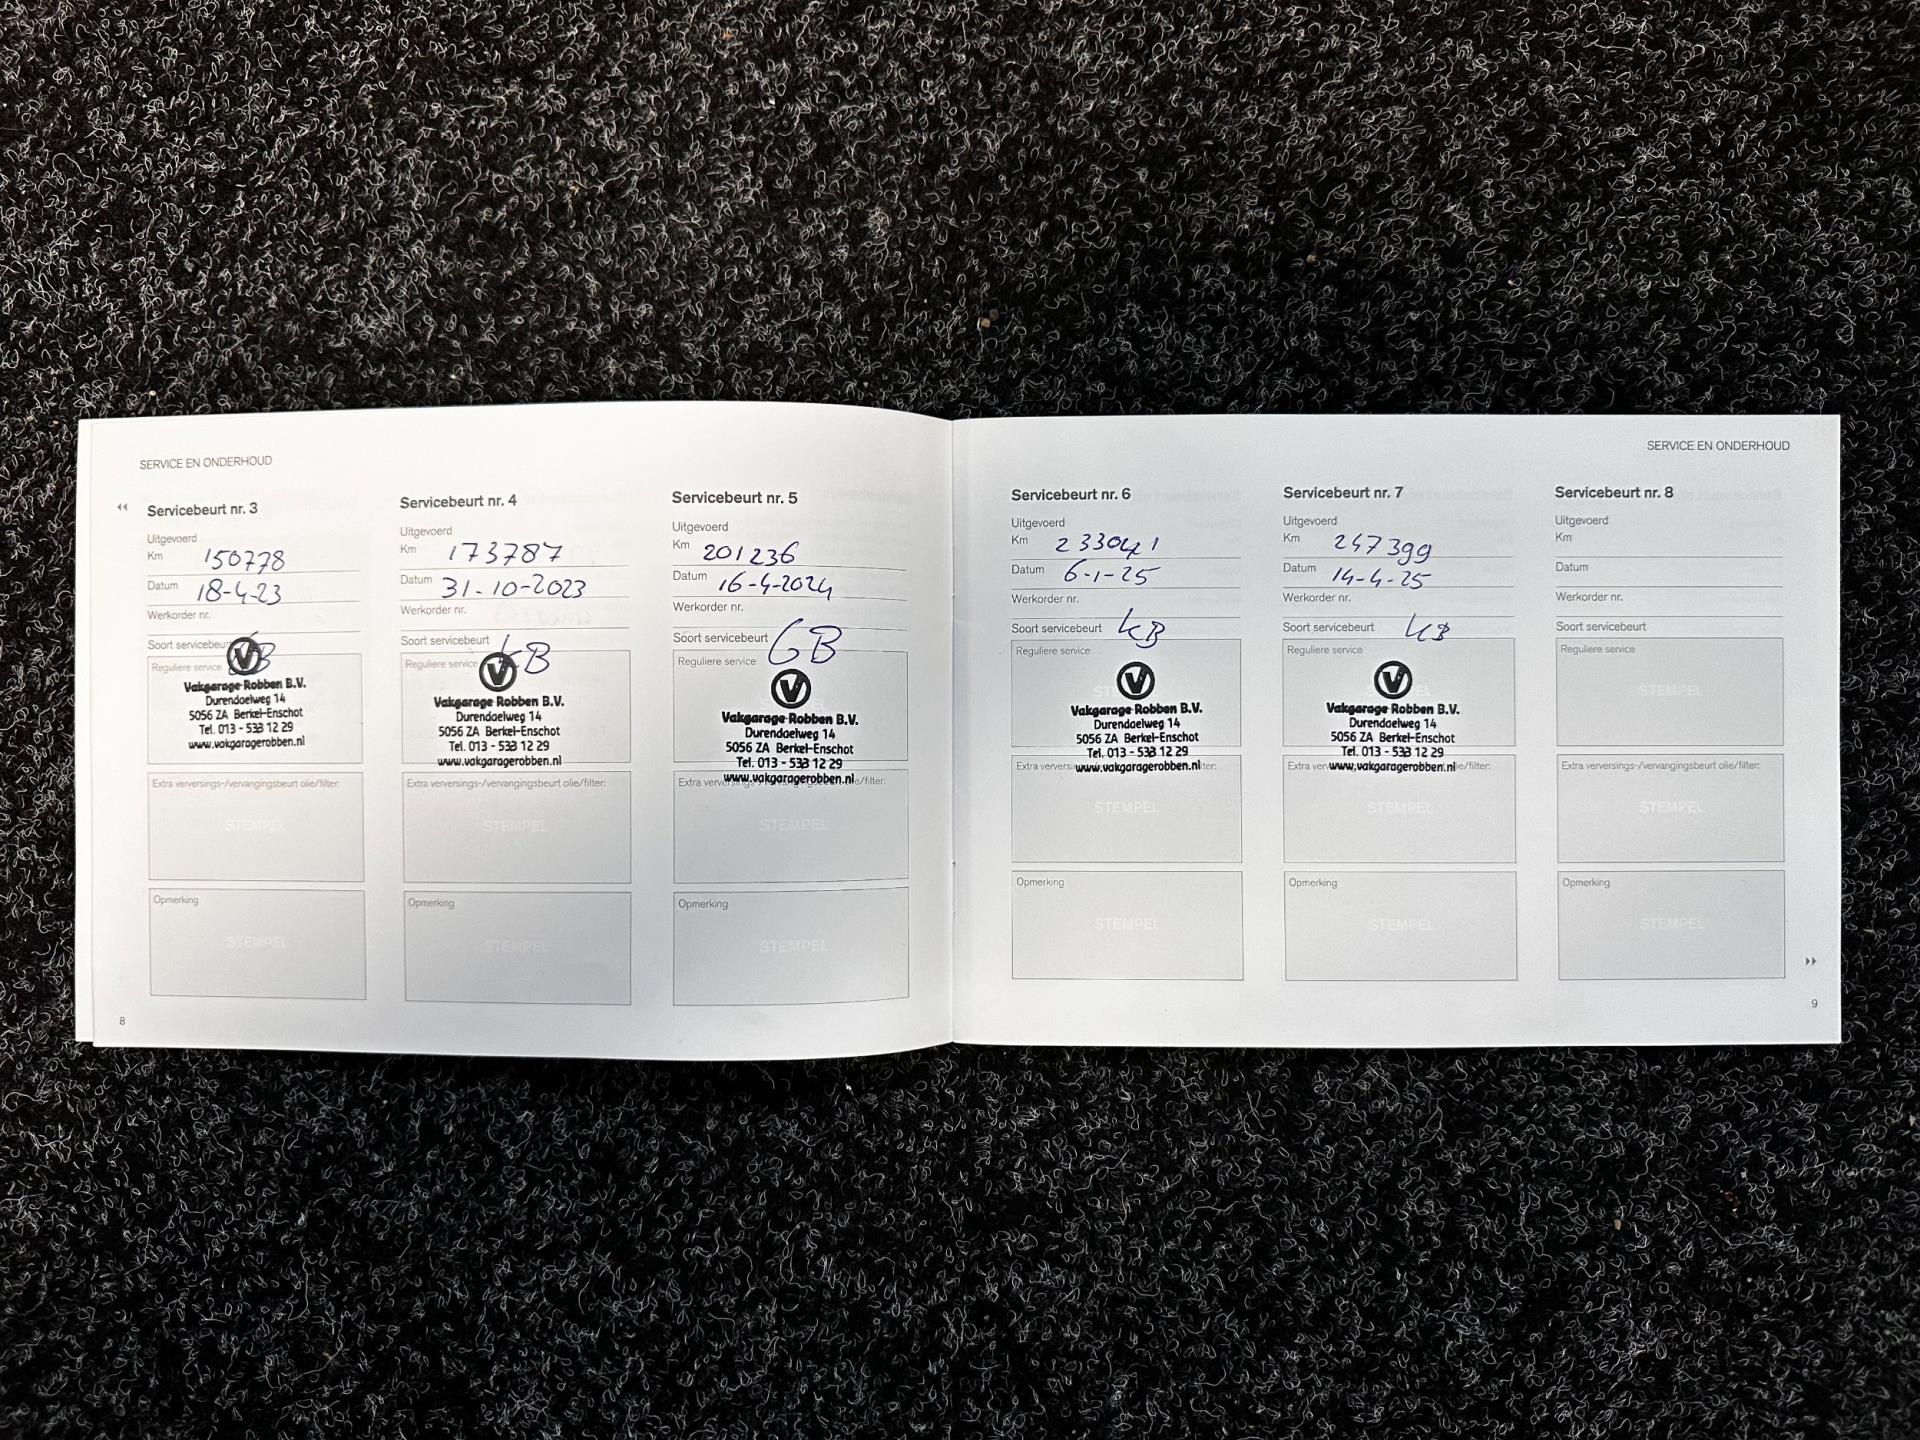 SERVICE EN ONDERHOUD
Servicebeurt nr. 3
Uitgevoerd
Km 150778
Datum 18-4-23
Werkorder nr.
Soort servicebeu
Reguliere service
V
Vakgarage Robben B.V.
Durendaelweg 14
5056 ZA Berkel-Enschot
Tel. 013 - 533 12 29
www.vakgaragerobben.nl
Extra verversings-/vervangingsbeurt olie/filter:
STEMPEL
Opmerking
STEMPEL
8
Servicebeurt nr. 4
Uitgevoerd
Km 173787
Datum 31-10-2023
Werkorder nr.
Soort servicebeurt KB
Reguliere service
V
Vakgarage Robben B.V.
Durendaelweg 14
5056 ZA Berkel-Enschot
Tel. 013 - 533 12 29
www.vakgaragerobben.nl
Extra verversings-/vervangingsbeurt olie/filter:
STEMPEL
Opmerking
STEMPEL
Servicebeurt nr. 5
Uitgevoerd
Km 201236
Datum 16-4-2024
Werkorder nr.
Soort servicebeurt GB
Reguliere service
V
Vakgarage Robben B.V.
Durendaelweg 14
5056 ZA Berkel-Enschot
Tel. 013 - 533 12 29
www.vakgaragerobben.nl
STEMPEL
Opmerking
STEMPEL
SERVICE EN ONDERHOUD
Servicebeurt nr. 6
Uitgevoerd
Km 233041
Datum 6-1-25
Werkorder nr.
Soort servicebeurt KB
Reguliere service
V
Vakgarage Robben B.V.
Durendaelweg 14
5056 ZA Berkel-Enschot
Tel. 013 - 533 12 29
www.vakgaragerobben.nl
STEMPEL
Opmerking
STEMPEL
Servicebeurt nr. 7
Uitgevoerd
Km 247399
Datum 14-4-25
Werkorder nr.
Soort servicebeurt KB
Reguliere service
V
Vakgarage Robben B.V.
Durendaelweg 14
5056 ZA Berkel-Enschot
Tel. 013 - 533 12 29
www.vakgaragerobben.nl
STEMPEL
Opmerking
STEMPEL
Servicebeurt nr. 8
Uitgevoerd
Km
Datum
Werkorder nr.
Soort servicebeurt
Reguliere service
STEMPEL
Extra verversings-/vervangingsbeurt olie/filter:
STEMPEL
Opmerking
STEMPEL
9